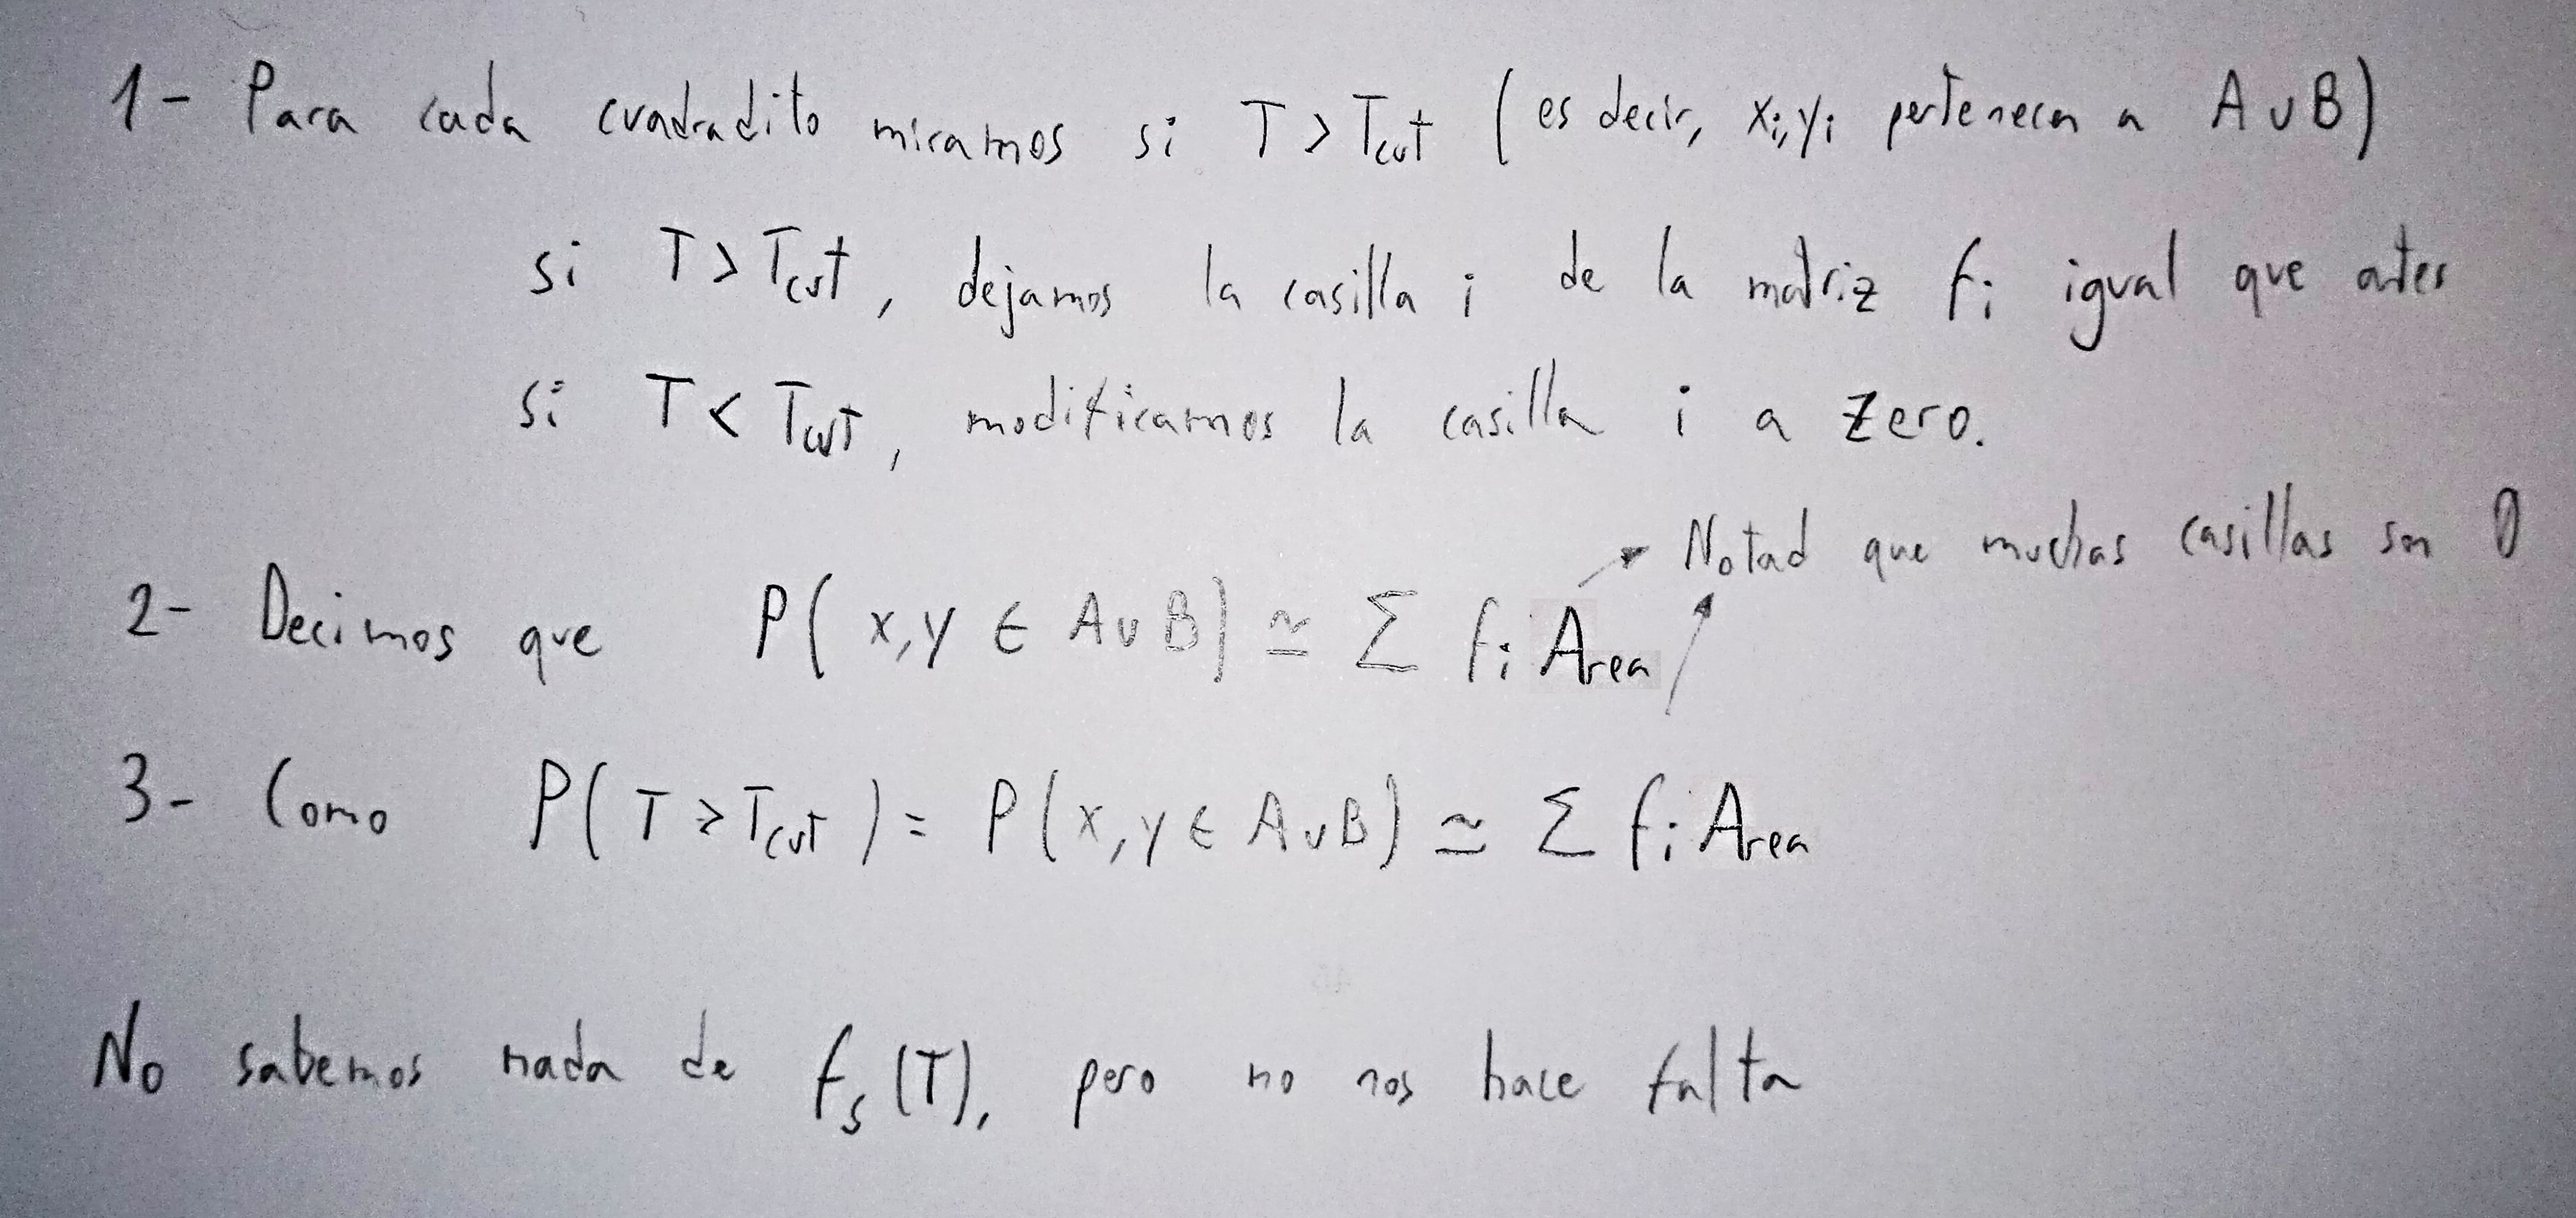 1- Para cada cuadradito miramos si T > Tcut (es decir, xi, yi pertenecen a A∪B)
si T > Tcut, dejamos la casilla i de la matriz fi igual que antes
si T < Tcut, modificamos la casilla i a zero.
Notad que muchas casillas son 0
2- Decimos que P(x,y ∈ A∪B) ≃ Σ fi Area
3- Como P(T > Tcut) = P(x,y ∈ A∪B) ≃ Σ fi Area
No sabemos nada de fs(T), pero no nos hace falta